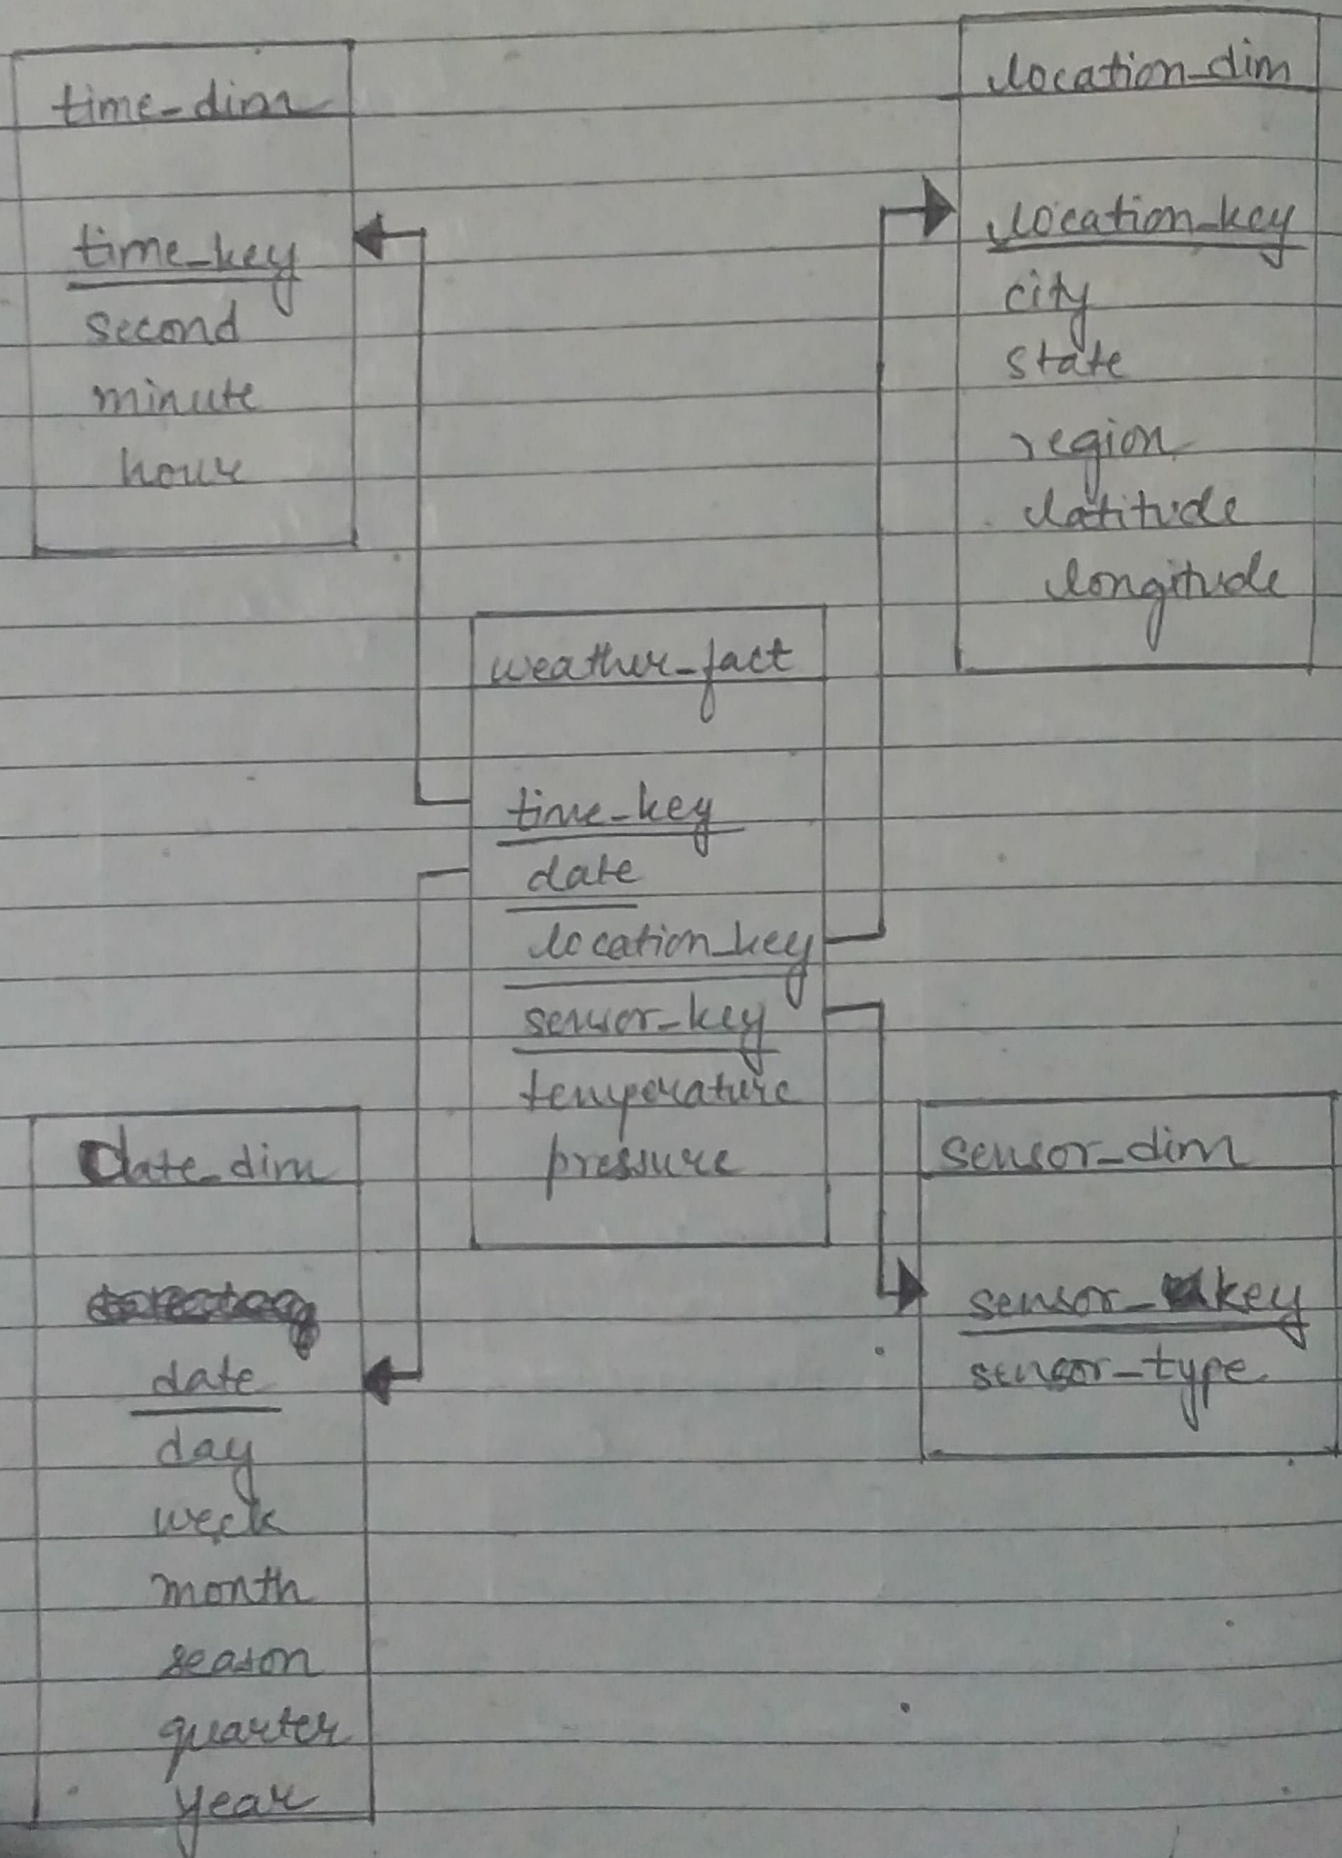 time_dim
time_key
second
minute
hour
location_dim
location_key
city
state
region
latitude
longitude
weather_fact
time_key
date
location_key
sensor_key
temperature
pressure
date_dim
date
day
week
month
season
quarter
year
sensor_dim
sensor_key
sensor_type